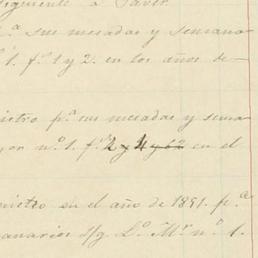 Siguiente á saver
L.ª sus mesadas y semana
n.º 1. f.s 1 y 2. en los años de
nistro p.ª sus mesadas y sema
yor n.º 1. f.s 2 y 4 y 62 en el
nistro en el año de 1891. p.ª
anarios s/g L.º M.r n.º 1.